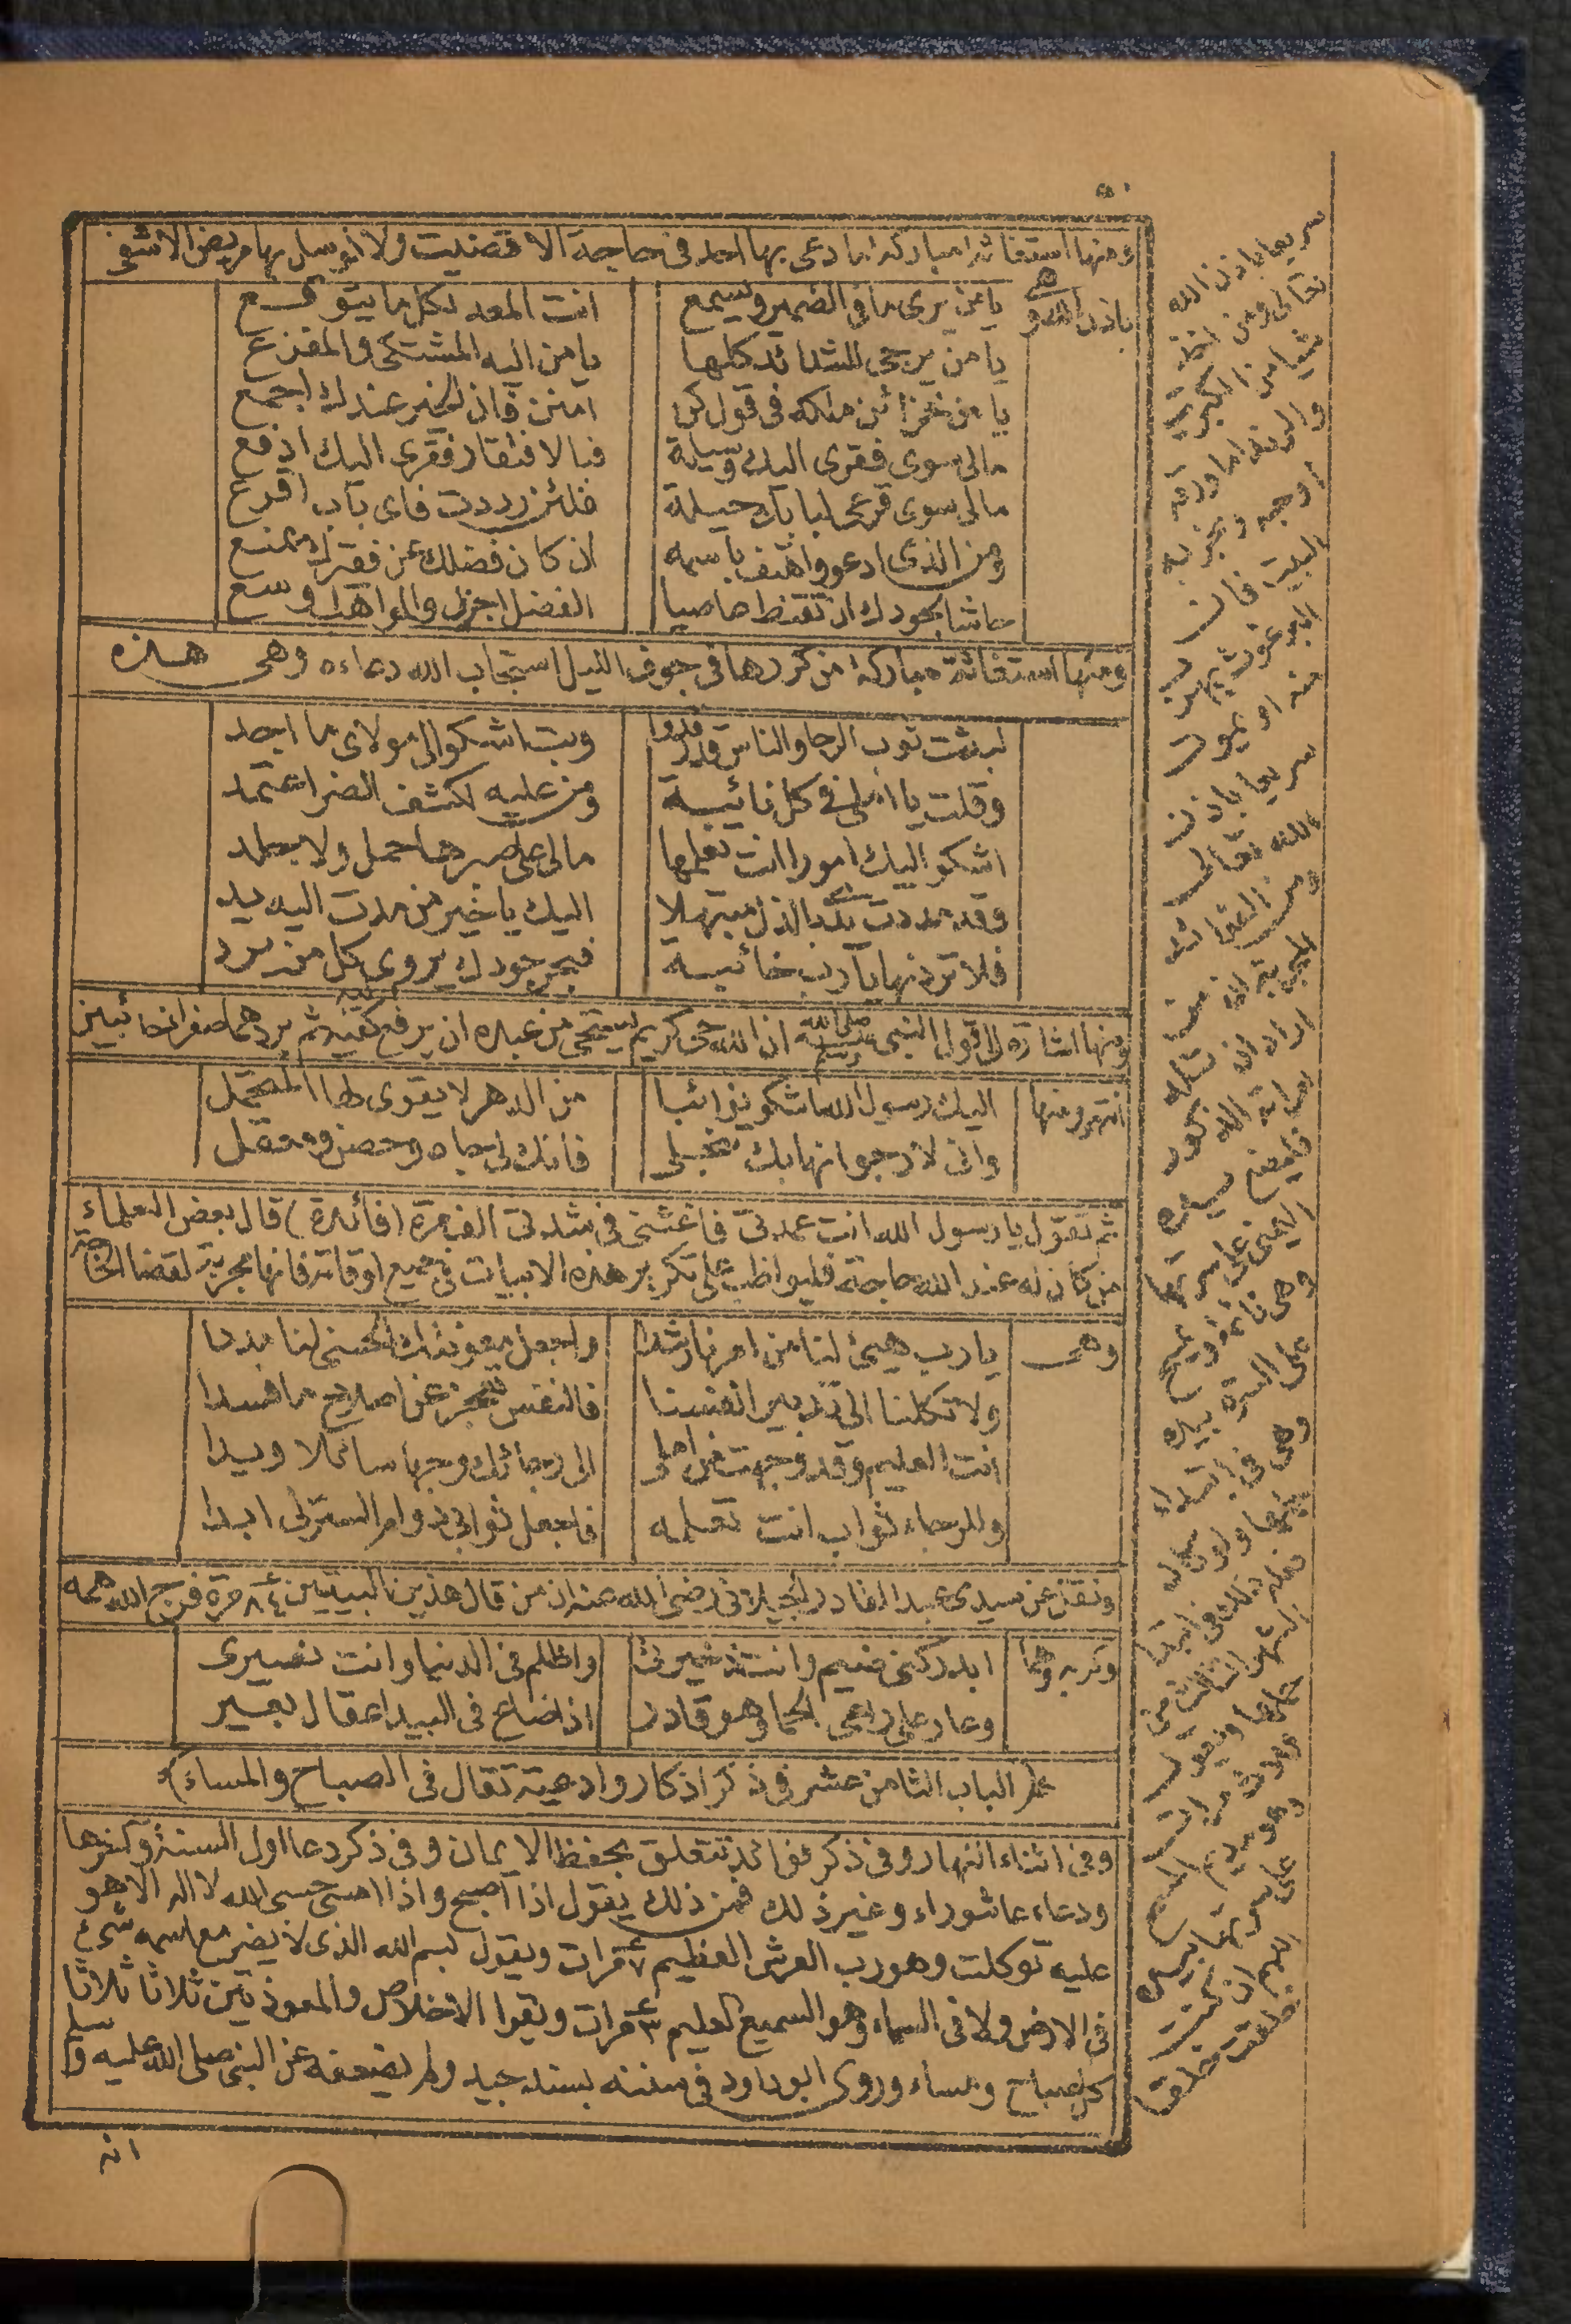 ٥٠
ومنها استغاثة مباركة ما دعى بها احد فى حاجة الا قضيت ولا توسل بها مريض الا شفى
باذن الله وهى
يا من يرى ما فى الضمير ويسمع انت المعد لكل ما يتوقع
يا من يرجى للشدائد كلها يا من اليه المشتكى والمفزع
يا من خزائن ملكه فى قول كن امنن فان الخير عندك اجمع
مالى سوى فقرى اليك وسيلة فبالافتقار فقرى اليك ادفع
مالى سوى قرعى لبابك حيلة فلئن رددت فاى باب اقرع
ومن الذى ادعو واهتف باسمه ان كان فضلك عن فقرك يمنع
حاشا لجودك ان تقنط عاصيا الفضل اجزل والمواهب اوسع
ومنها استغاثة مباركة من كررها فى جوف الليل استجاب الله دعاءه وهى هذه
لبست ثوب الرجا والناس قد رقدوا وبت اشكو الى مولاى ما اجد
وقلت يا املى فى كل نائبة ومن عليه لكشف الضر اعتمد
اشكو اليك امورا انت تعلمها مالى على صبرها حمل ولا جلد
وقد مددت يدى بالذل مبتهلا اليك يا خير من مدت اليه يد
فلا تردنها يا رب خائبة فبحر جودك يروى كل من يرد
ومنها اشارة الى قول النبى صلى الله عليه وسلم ان الله حى كريم يستحى من عبده ان يرفع كفيه ثم يردهما صفرا خائبين
انتهى ومنها اليك رسول الله اشكو نوائبا من الدهر لا يقوى لها المتحمل
وانى لارجو انها بك تنجلى فانك لى جاه وحصن ومعقل
ثم تقول يا رسول الله انت عمدتى فاغثنى فى شدتى الف مرة (فائدة) قال بعض العلماء
من كان له عند الله حاجة فليواظب على تكرير هذه الابيات فى جميع اوقاته فانها مجربة لقضا الحاجة
وهى يا رب هيئ لنا من امرنا رشدا واجعل معونتك الحسنى لنا مددا
ولا تكلنا الى تدبير انفسنا فالنفس تعجز عن اصلاح ما فسدا
انت العليم وقد وجهت من املى الى رجائك وجها سائلا ويدا
وللرجاء ثواب انت تعلمه فاجعل ثوابى دوام الستر لى ابدا
ونقل عن سيدى عبد القادر الجيلانى رضى الله عنه ان من قال هذين البيتين ٨٤ مرة فرج الله همه
وكربه وهما ايدركنى ضيم وانت ذخيرتى واظلم فى الدنيا وانت نصيرى
وعار على راعى الحما وهو قادر اذا ضاع فى البيدا عقال بعير
الباب الثامن عشر فى ذكر اذكار وادعية تقال فى الصباح والمساء
وفى اثناء النهار وفى ذكر فوائد تتعلق بحفظ الايمان وفى ذكر دعا اول السنة وآخرها
ودعاء عاشوراء وغير ذلك فمن ذلك يقول اذا اصبح واذا امسى حسبى الله لا اله الا هو
عليه توكلت وهو رب العرش العظيم ٧ مرات ويقول بسم الله الذى لا يضر مع اسمه شىء
فى الارض ولا فى السماء وهو السميع العليم ٣ مرات ويقرا الاخلاص والمعوذتين ثلاثا ثلاثا
كل صباح ومساء وروى ابو داود فى سننه بسند جيد ولم يضعفه عن النبى صلى الله عليه وسلم
انه
سريعا باذن الله
تعالى ومن اخذ
شيا من الكبريت
البيت فان
البرغوث يهرب
منه او يموت
سريعا باذن
الله تعالى
ومن الفوائد
اليمنى على سرتها
وهى نائمة ويمسح
على السرة بيده
وهى فى ابتداء
الشهر الثالث من
حملها ويقول
ثلاث مرات
وهو يديم المسح
على سرتها بيده
اللهم ان كنت
خلقت خلقا